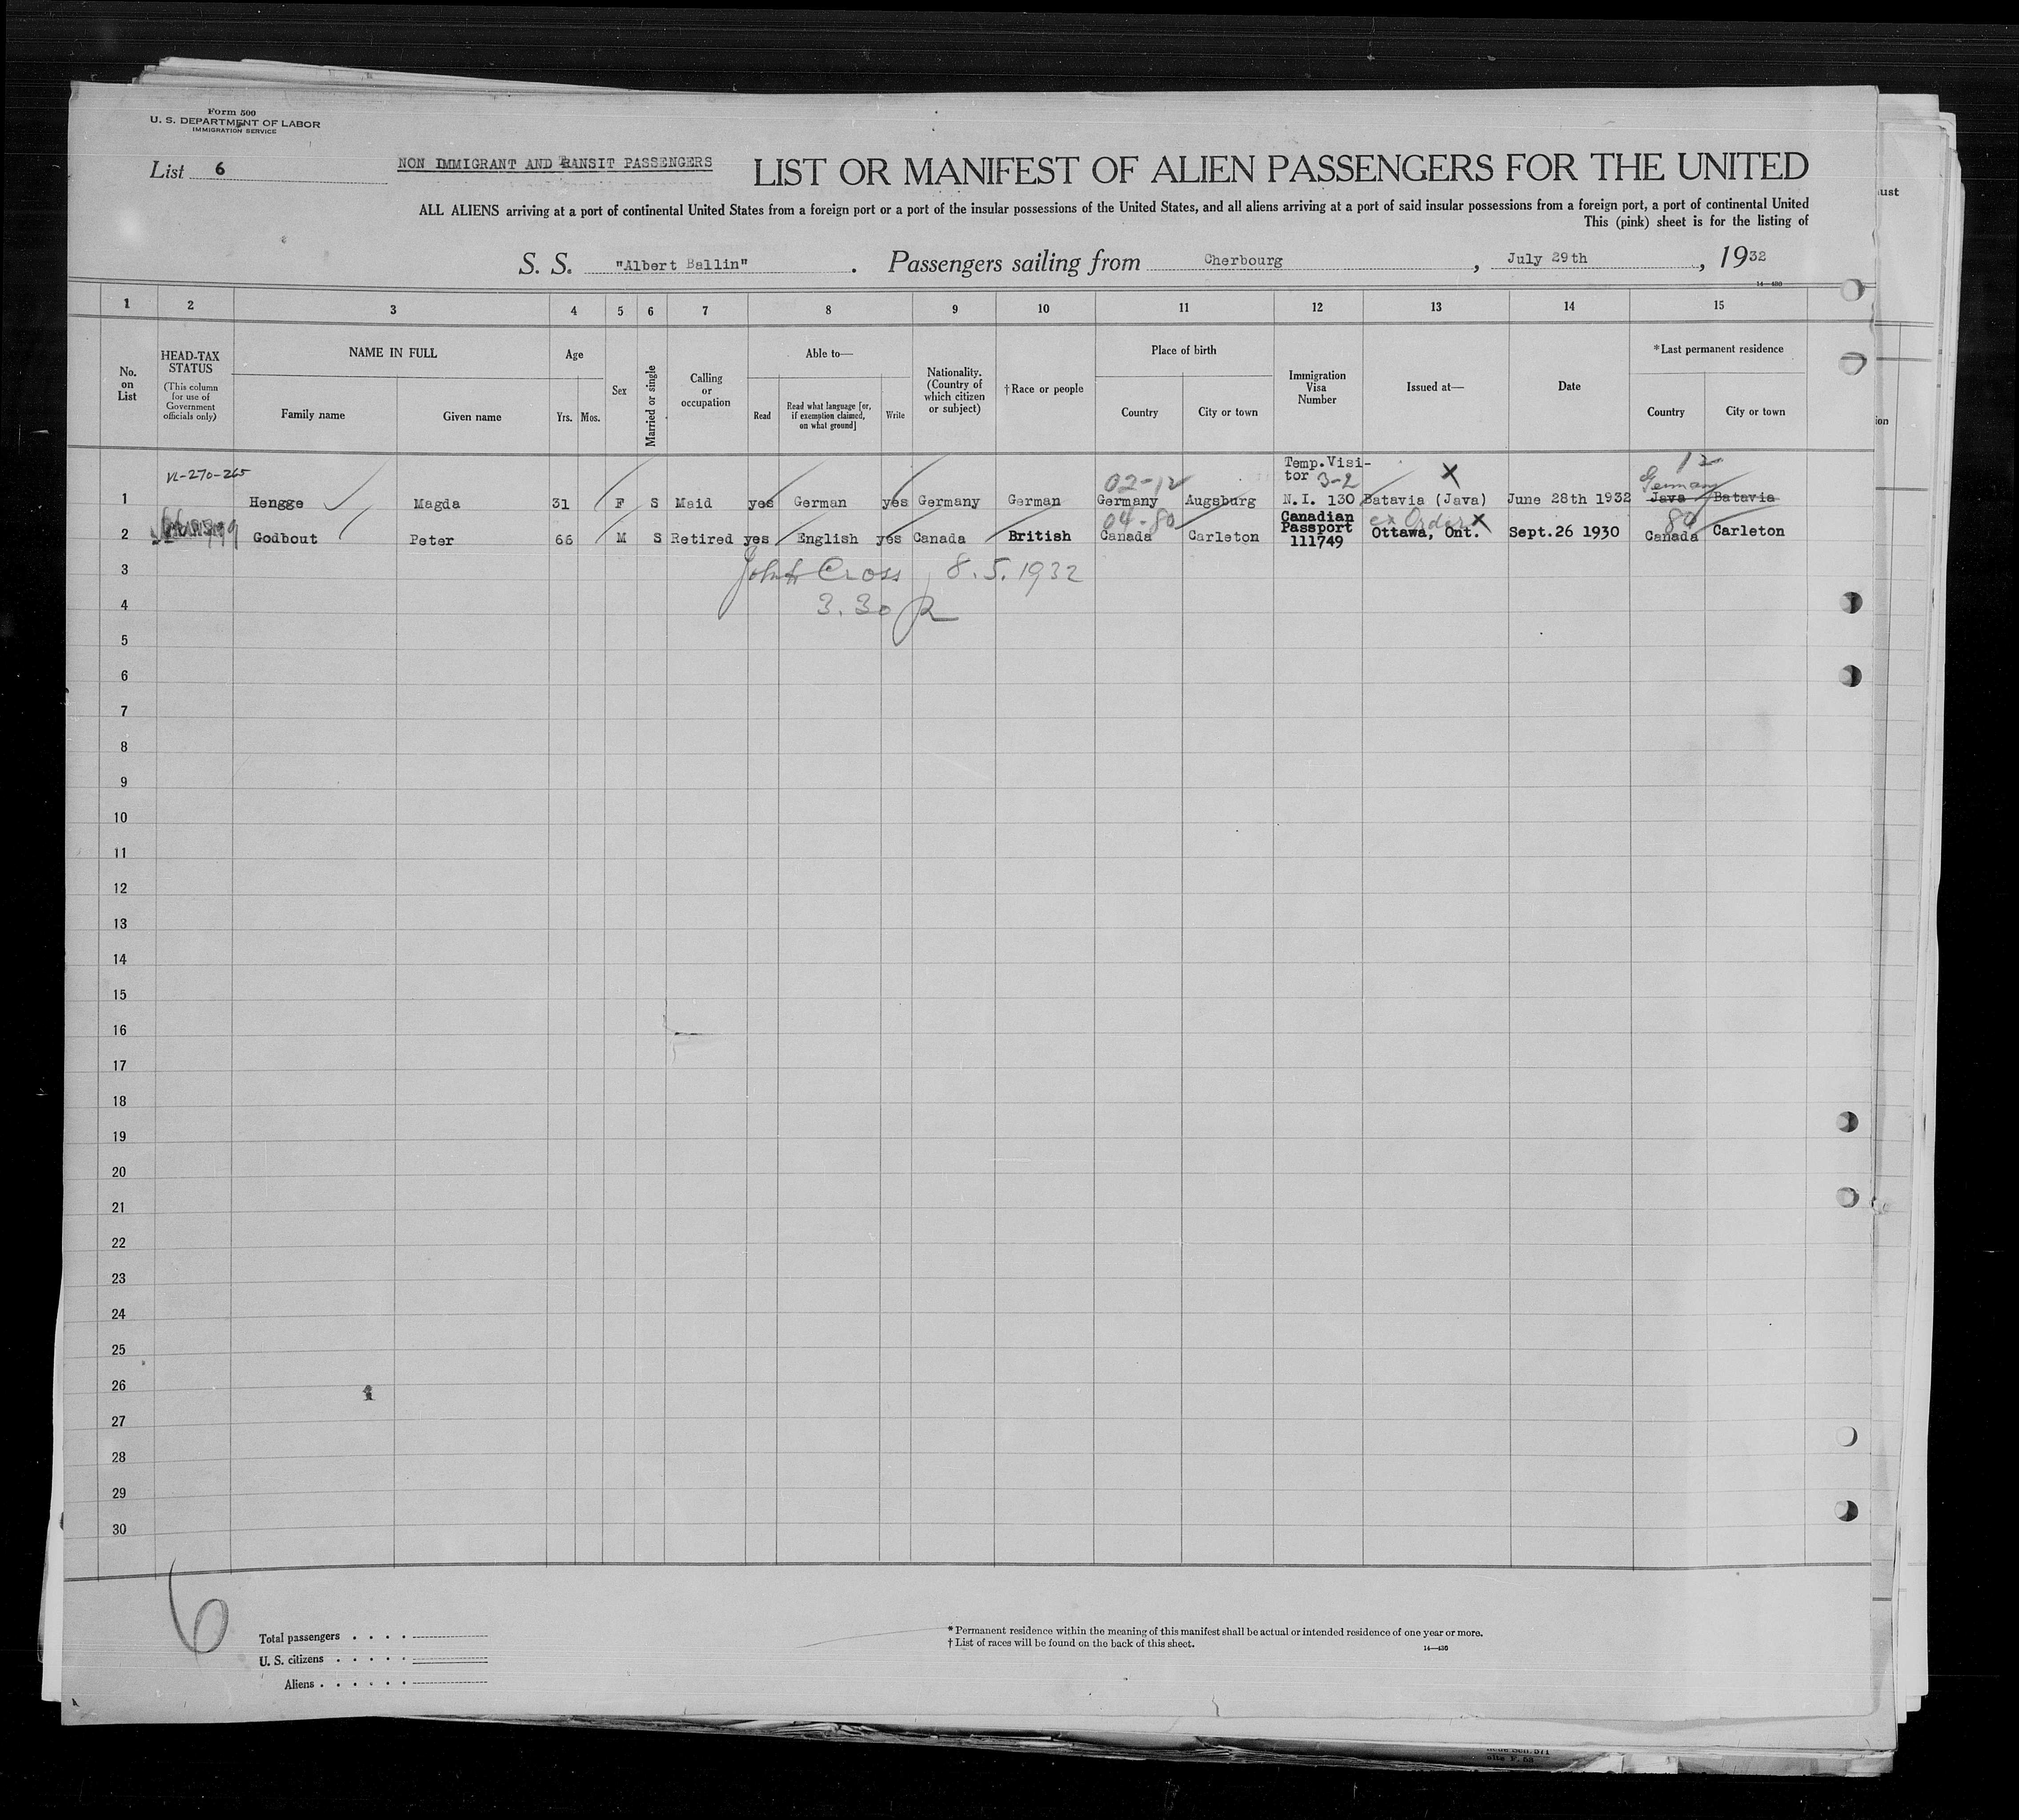 Form 500
U. S. DEPARTMENT OF LABOR
IMMIGRATION SERVICE
List 6
NON IMMIGRANT AND TRANSIT PASSENGERS
LIST OR MANIFEST OF ALIEN PASSENGERS FOR THE UNITED
ALL ALIENS arriving at a port of continental United States from a foreign port or a port of the insular possessions of the United States, and all aliens arriving at a port of said insular possessions from a foreign port, a port of continental United
This (pink) sheet is for the listing of
S. S. "Albert Ballin". Passengers sailing from Cherbourg, July 29th, 1932
14—430
1 2 3 4 5 6 7 8 9 10 11 12 13 14 15
No. on List
HEAD-TAX STATUS (This column for use of Government officials only)
NAME IN FULL
Family name Given name
Age
Yrs. Mos.
Sex
Married or single
Calling or occupation
Able to—
Read
Read what language [or, if exemption claimed, on what ground]
Write
Nationality. (Country of which citizen or subject)
†Race or people
Place of birth
Country City or town
Immigration Visa Number
Issued at—
Date
*Last permanent residence
Country City or town
VL-270-265 02-12 Temp. Visitor 3-2 X Germany 12
1 Hengge Magda 31 F S Maid yes German yes Germany German Germany Augsburg N.I. 130 Batavia (Java) June 28th 1932 Java Batavia
04-80 Canadian Passport ex Order X 80
2 Godbout Peter 66 M S Retired yes English yes Canada British Canada Carleton 111749 Ottawa, Ont. Sept.26 1930 Canada Carleton
3 John Cross 8.5.1932
4 3.30
5
6
7
8
9
10
11
12
13
14
15
16
17
18
19
20
21
22
23
24
25
26
27
28
29
30
6
Total passengers
U. S. citizens
Aliens
* Permanent residence within the meaning of this manifest shall be actual or intended residence of one year or more.
† List of races will be found on the back of this sheet.
14—430
ust
ion